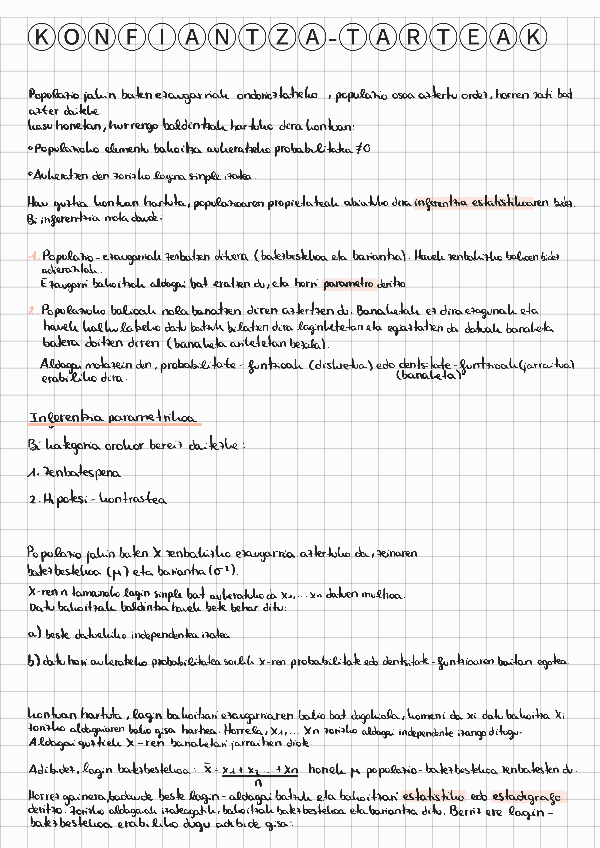 KONFIANTZA-TARTEAK
Populazio jakin baten ezaugarriak ondorioztatzeko, populazio osoa aztertu ordez, horren zati bat
azter daiteke.
Kasu honetan, hurrengo baldintzak hartuko dira kontuan:
•Populazioko elementu bakoitza aukeratzeko probabilitatea ≠0
•Aukeratzen den zorizko lagina sinple izatea.
Hau guztia kontuan hartuta, populazioaren propietateak abiatuko dira inferentzia estatistikoaren bidez.
Bi inferentzia mota daude:
1. Populazio-ezaugarriak zenbatzen dituena (batezbestekoa eta bariantza). Hauek zenbakizko balioen bidez
adierazten.
Ezaugarri bakoitzak aldagai bat eratzen du, eta horri parametro deritzo
2. Populazioko balioak nola banatzen diren aztertzen du. Banaketak ez dira ezagunak eta
hauek kalkulatzeko datu batzuk bilatzen dira laginketetan eta egiaztatzen da datuak banaketa
batera doitzen diren (banaketa ariketetan bezala).
Aldagai motaren din, probabilitate-funtzioak (diskretua) edo dentsitate-funtzioak (jarraitua)
erabiliko dira. (banaketa)
Inferentzia parametrikoa
Bi kategoria orokor bereiz daitezke:
1. Zenbatespena
2. Hipotesi-kontrastea
Populazio jakin baten X zenbakizko ezaugarria aztertuko da, zeinaren
batezbestekoa (μ) eta bariantza (σ²).
X-ren n tamainako lagin sinple bat aukeratuko da x₁,... xₙ datuen multzoa.
Datu bakoitzak baldintza hauek bete behar ditu:
a) beste datuekiko independentea izatea
b) datu hori aukeratzeko probabilitatea soilik X-ren probabilitate edo dentsitate-funtzioaren baitan egotea.
Kontuan hartuta, lagin bakoitzari ezaugarriaren balio bat dagokiola, komeni da xi datu bakoitza Xi
zorizko aldagaiaren balio gisa hartzea. Horrela, X₁,... Xn zorizko aldagai independente izango ditugu.
Aldagai guztiek X-ren banaketari jarraitzen diote.
Adibidez, lagin batezbestekoa: x̄ = (x₁+x₂...+xn)/n honek μ populazio-batezbestekoa zenbatesten du.
Horrez gainera, badaude beste lagin-aldagai batzuk eta bakoitzari estatistiko edo estadigrafo
deritzo. Zorizko aldagaiak izateagatik, bakoitzak batezbestekoa eta bariantza ditu. Berriz ere lagin-
batezbestekoa erabiliko dugu adibide gisa: